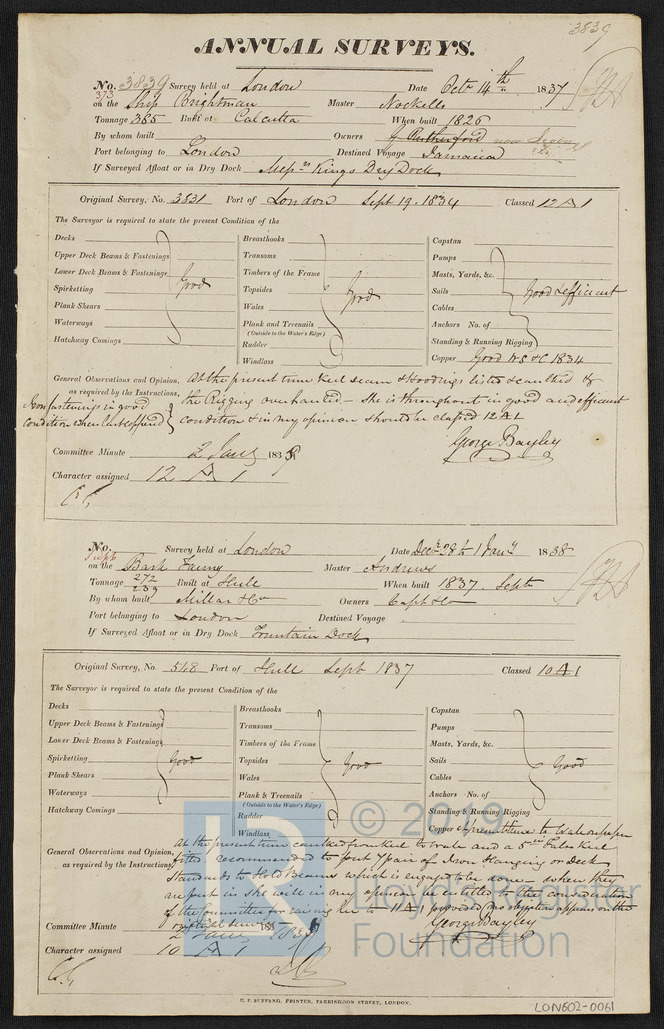 3839
ANNUAL SURVEYS.
No. 3839 Survey held at London Date Octr 14th 1837
373 on the Ship Brightman Master Nockells
Tonnage 385 Built at Calcutta When built 1826
By whom built Owners G Rutherford now
Port belonging to London Destined Voyage Jamaica
If Surveyed Afloat or in Dry Dock Messrs Kings Dry Dock
Original Survey, No. 3831 Port of London Sept 19. 1834 Classed 12 A 1
The Surveyor is required to state the present Condition of the
Decks
Upper Deck Beams & Fastenings
Lower Deck Beams & Fastenings
Spirketting
Plank Shears
Waterways
Hatchway Comings
Good
Breasthooks
Transoms
Timbers of the Frame
Topsides
Wales
Plank and Treenails
(Outside to the Water's Edge)
Rudder
Windlass
Good
Capstan
Pumps
Masts, Yards, &c.
Sails
Cables
Anchors No. of
Standing & Running Rigging
Good & efficient
Copper Good W S & C 1834
General Observations and Opinion, At the present time Keel seam & Hoodings listed & caulked &
as required by the Instructions, the Rigging overhauled – she is throughout in good and efficient
condition & in my opinion should be classed 12 A 1
Iron fastenings in good
condition when last coppered
George Bayley
Committee Minute 2 Jany 1838
Character assigned 12 A 1
No. Survey held at London Date Decr 28 to 1 Jany 1838
on the Bark Fanny Master Andrews
Tonnage 272 239 Built at Hull When built 1837. Septr
By whom built Millar & Co Owners Capt & Co
Port belonging to London Destined Voyage
If Surveyed Afloat or in Dry Dock Fountain Dock
Original Survey, No. 548 Port of Hull Sept 1837 Classed 10 A 1
The Surveyor is required to state the present Condition of the
Decks
Upper Deck Beams & Fastenings
Lower Deck Beams & Fastenings
Spirketting
Plank Shears
Waterways
Hatchway Comings
Good
Breasthooks
Transoms
Timbers of the Frame
Topsides
Wales
Plank & Treenails
(Outside to the Water's Edge)
Rudder
Windlass
Good
Capstan
Pumps
Masts, Yards, &c.
Sails
Cables
Anchors No. of
Standing & Running Rigging
Good
Copper
General Observations and Opinion, At the present time caulked from keel to wale and a 5 in False Keel
as required by the Instructions, fitted, recommended to put 7 pair of Iron Hanging or Deck
Standards to Hold Beams which is engaged to be done – when they
are put in she will in my opinion be entitled to the consideration
of the Committee for raising her to 11 A 1 provided no objection appears on the
George Bayley
Committee Minute 183
Character assigned 10 A 1
C. F. SEYFANG, PRINTER, FARRINGDON STREET, LONDON.
LON602-0061
LR
© 2019
Lloyd's Register
Foundation